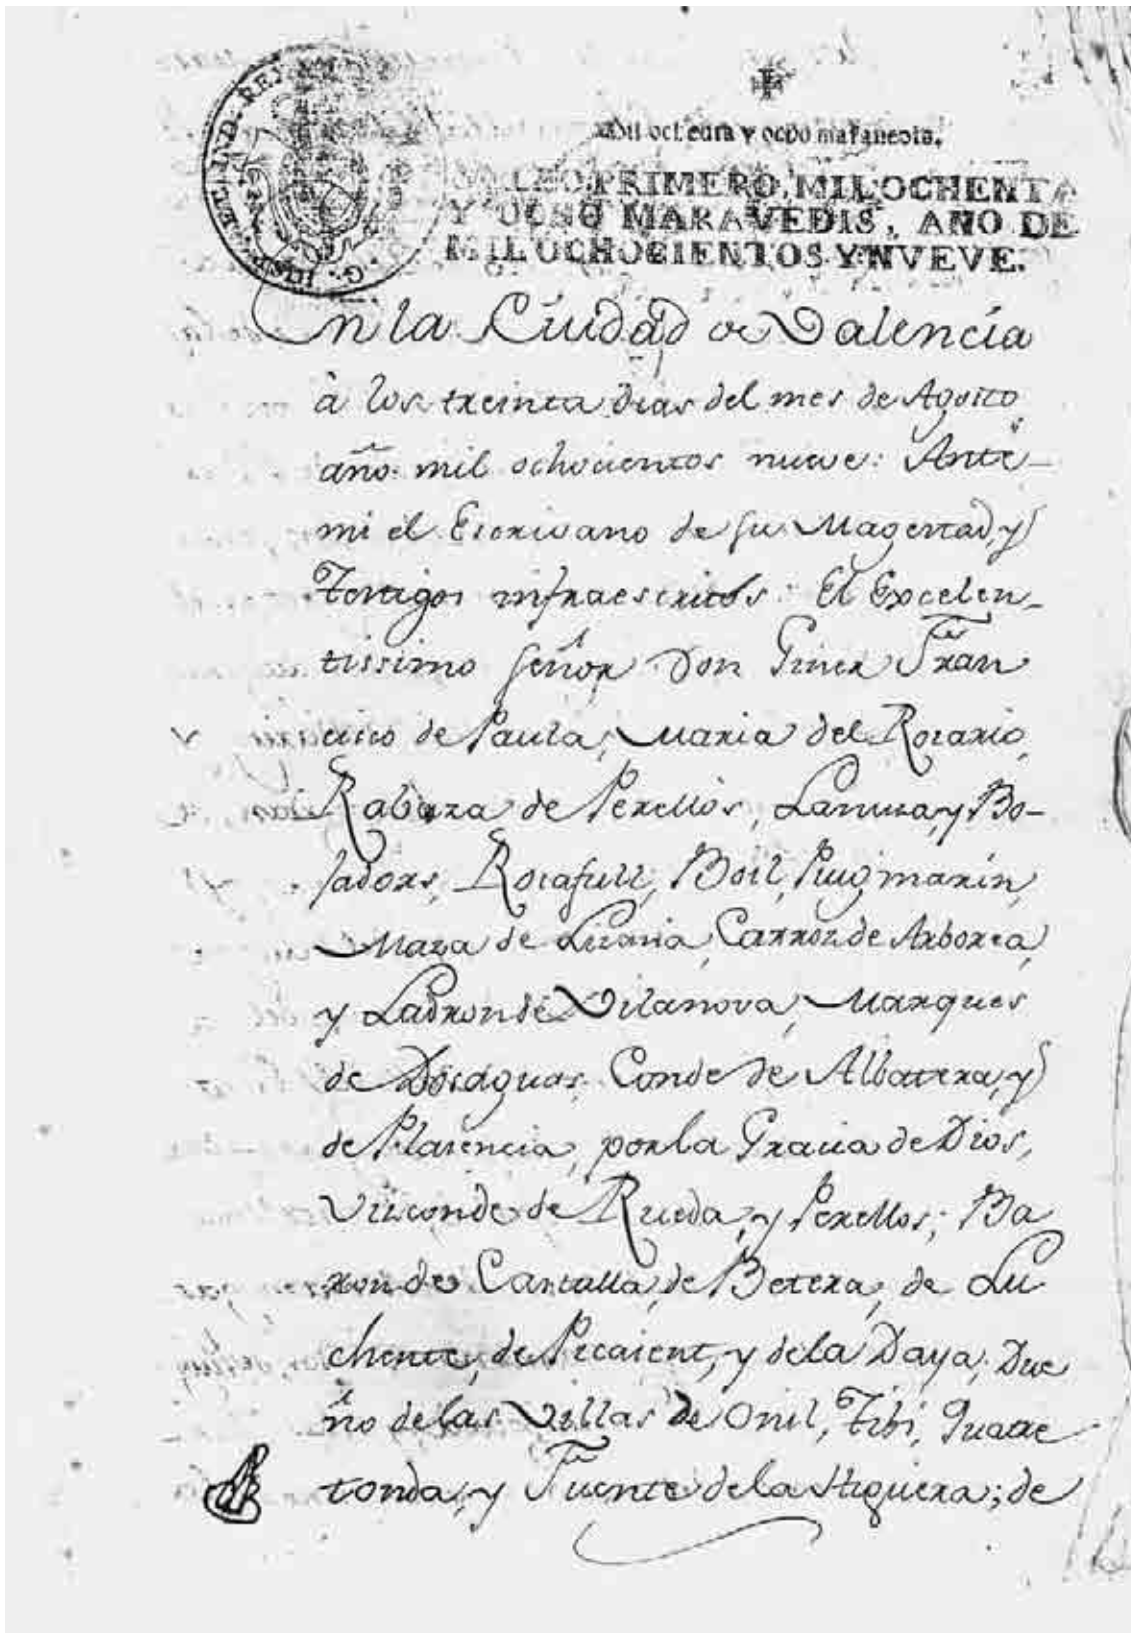 Mil ochenta y ocho maravedis.
SELLO PRIMERO, MIL OCHENTA
Y OCHO MARAVEDIS, AÑO DE
MIL OCHOCIENTOS Y NVEVE.
En la Ciudad de Valencia
à los treinta dias del mes de Agosto
año mil ochocientos nueve: Ante
mi el Escrivano de su Magestad, y
Testigos infraescritos: El Excelen-
tissimo Señor Don Giner Fran
cisco de Paula, Maria del Rosario,
Rabaza de Perellòs, Lanuza, y Bo-
sadors, Rocafull, Boil, Puigmarin,
Maza de Lizana, Carroz de Arborea,
y Ladron de Vilanova, Marques
de Dosaguas, Conde de Albatera, y
de Plasencia, por la Gracia de Dios,
Vizconde de Rueda, y Perellos; Ba
ron de Castalla, de Betera, de Lu
chente, de Picasent, y de la Daya, Due
ño de las Villas de Onil, Tibi, Quatre
tonda, y Fuente de la Higuera; de